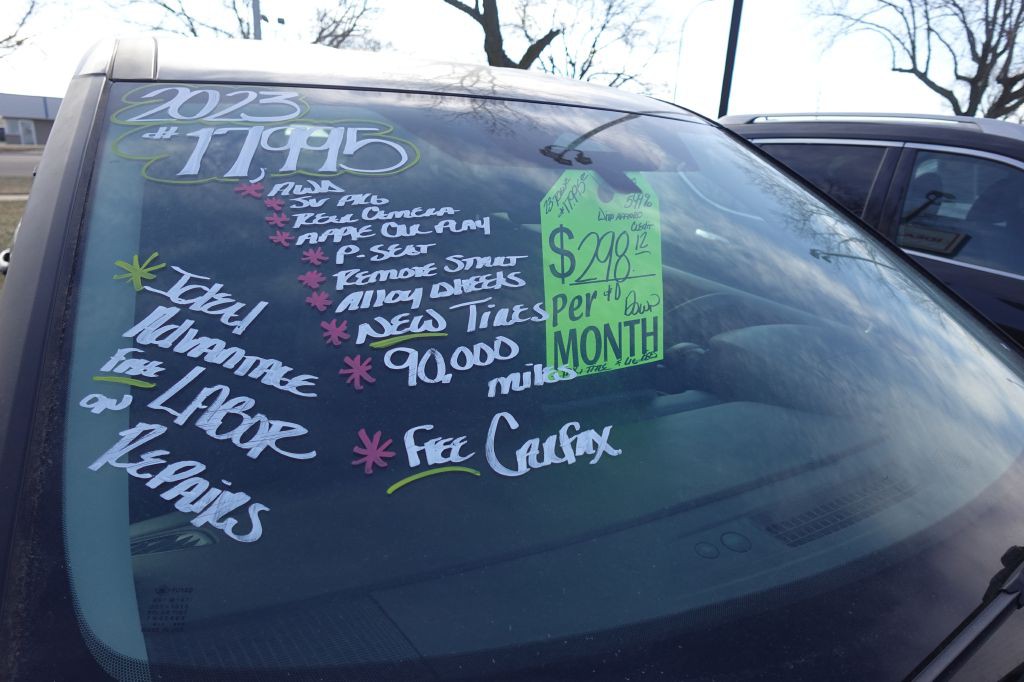 2023
#17,995
* AWD
* SV PKG
* Rear Camera
* Apple Car Play
* P-Seat
* Remote Start
* Alloy Wheels
* New Tires
* 90,000
miles
* Free Carfax
* Ideal
Advantage
Free
on LABOR
Repairs
$17,995
$298.12
Per
MONTH